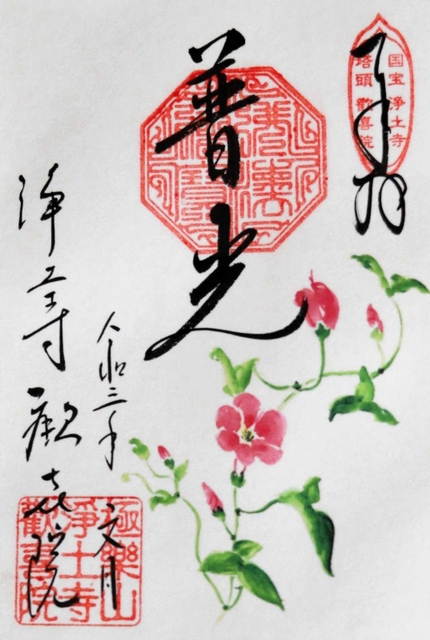 奉拝
国宝 浄土寺
塔頭 歡喜院
普光
令和三年
文月
浄土寺 歓喜院
極樂山
淨土寺
歡喜院